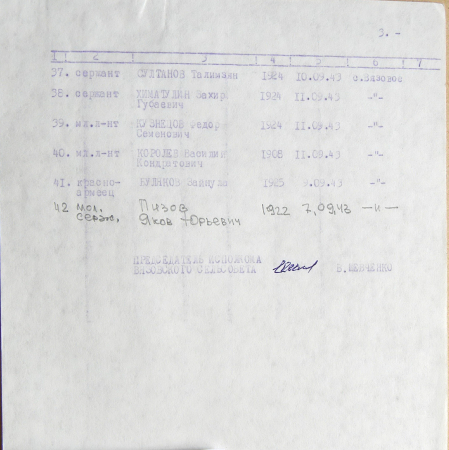 3. -
1 2 3 4 5 6 7
37. сержант СУЛТАНОВ 1924 10.09.43 с.Вязовое
38. сержант ХИМАТУЛИН Закир 1924 11.09.43 -"-
Губеевич
39. мл.л-нт КУЗНЕЦОВ Федор 1924 11.09.43 -"-
Семенович
40. мл.л-нт КОРОЛЕВ Василий 1906 11.09.43 -"-
Кондратович
41. красно- КУЛИКОВ 9.09.43 -"-
армеец
42 мол. Пизов 1922 7,09,43 -"-
сержт. Яков Юрьевич
ПРЕДСЕДАТЕЛЬ ИСПОЛКОМА
ВЯЗОВСКОГО СЕЛЬСОВЕТА В.ШЕВЧЕНКО